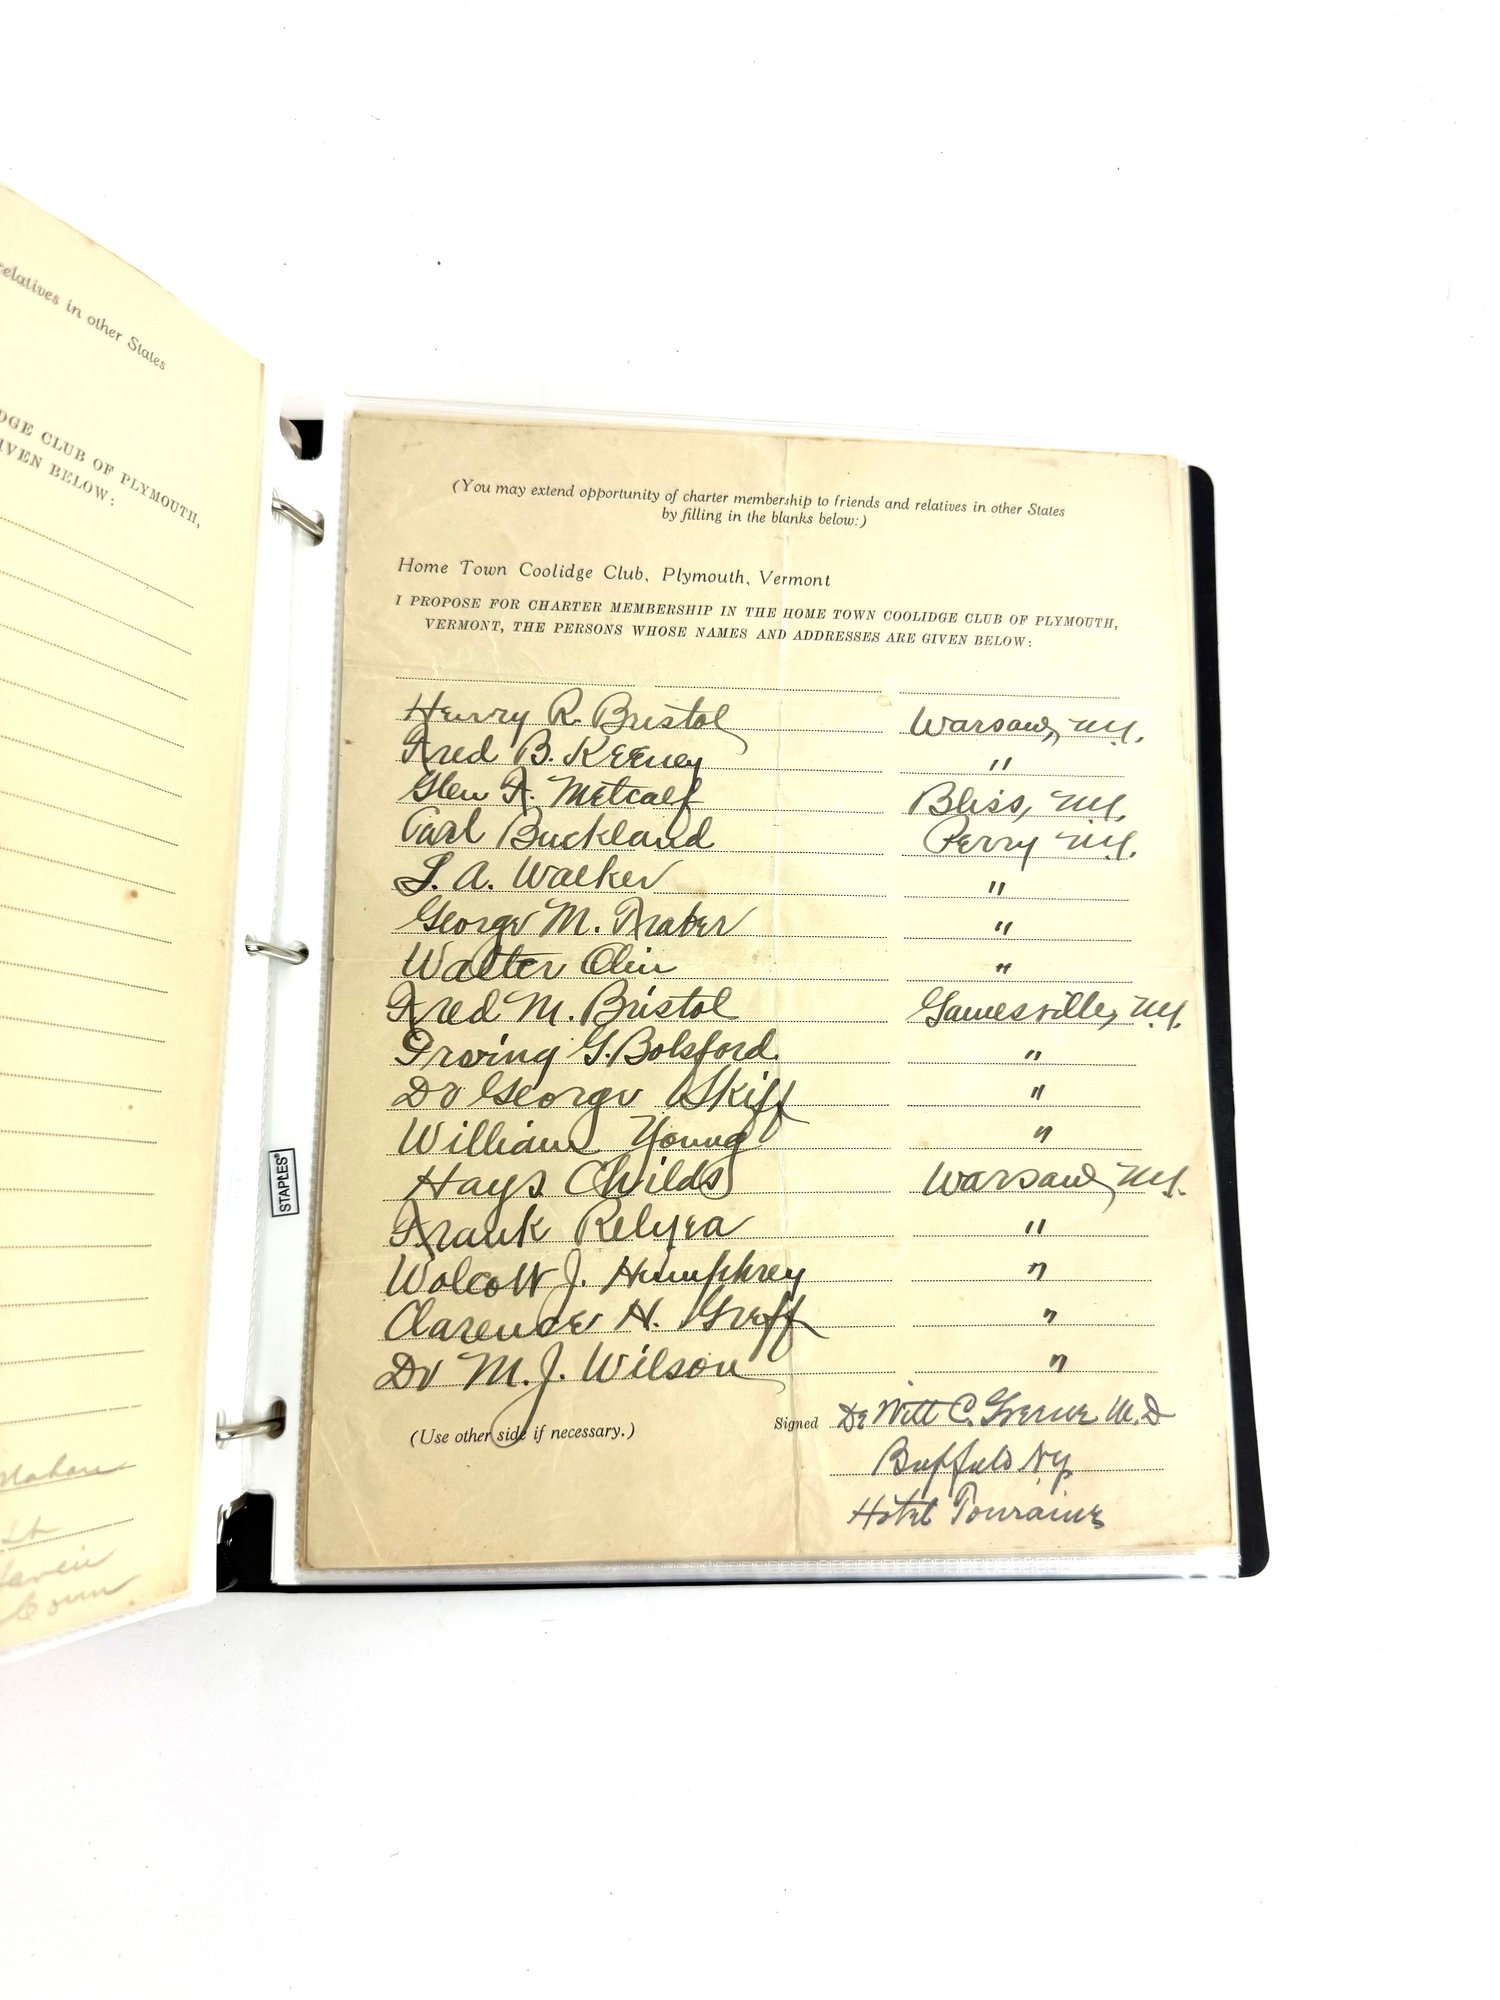 relatives in other States
DGE CLUB OF PLYMOUTH,
IVEN BELOW:
STAPLES
(You may extend opportunity of charter membership to friends and relatives in other States
by filling in the blanks below:)
Home Town Coolidge Club, Plymouth, Vermont
I PROPOSE FOR CHARTER MEMBERSHIP IN THE HOME TOWN COOLIDGE CLUB OF PLYMOUTH,
VERMONT, THE PERSONS WHOSE NAMES AND ADDRESSES ARE GIVEN BELOW:
Henry R. Bristol Warsaw, N.Y.
Fred B. Keeney "
Glen F. Metcalf Bliss, N.Y.
Carl Buckland Perry N.Y.
L. A. Walker "
George M. Traber "
Walter Olin "
Fred M. Bristol Gainesville, N.Y.
Irving G. Botsford "
Dr George Skiff "
William Young "
Hays Childs Warsaw, N.Y.
Frank Relyea "
Wolcott J. Humphrey "
Clarence H. Greff "
Dr M. J. Wilson "
(Use other side if necessary.)
Signed De Witt C. Greene M.D
Buffalo N.Y.
Hotel Touraine